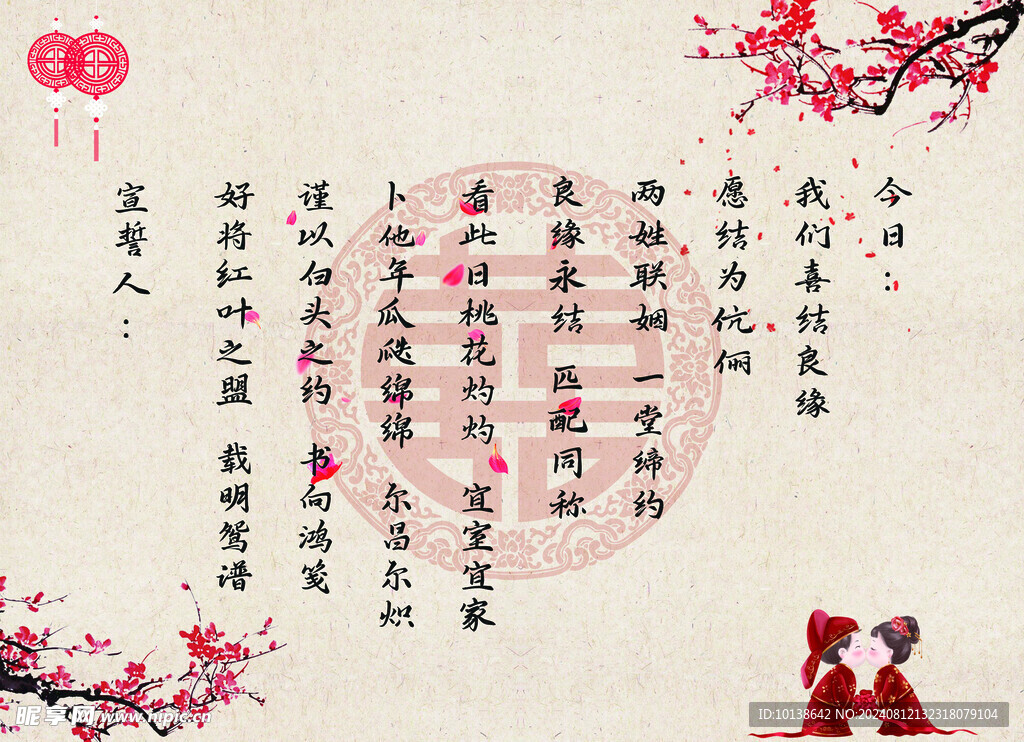 今日：
我们喜结良缘
愿结为伉俪
两姓联姻 一堂缔约
良缘永结 匹配同称
看此日桃花灼灼 宜室宜家
卜他年瓜瓞绵绵 尔昌尔炽
谨以白头之约 书向鸿笺
好将红叶之盟 载明鸳谱
宣誓人：
囍
昵享网 www.nipic.cn
ID:10138642 NO:20240812132318079104